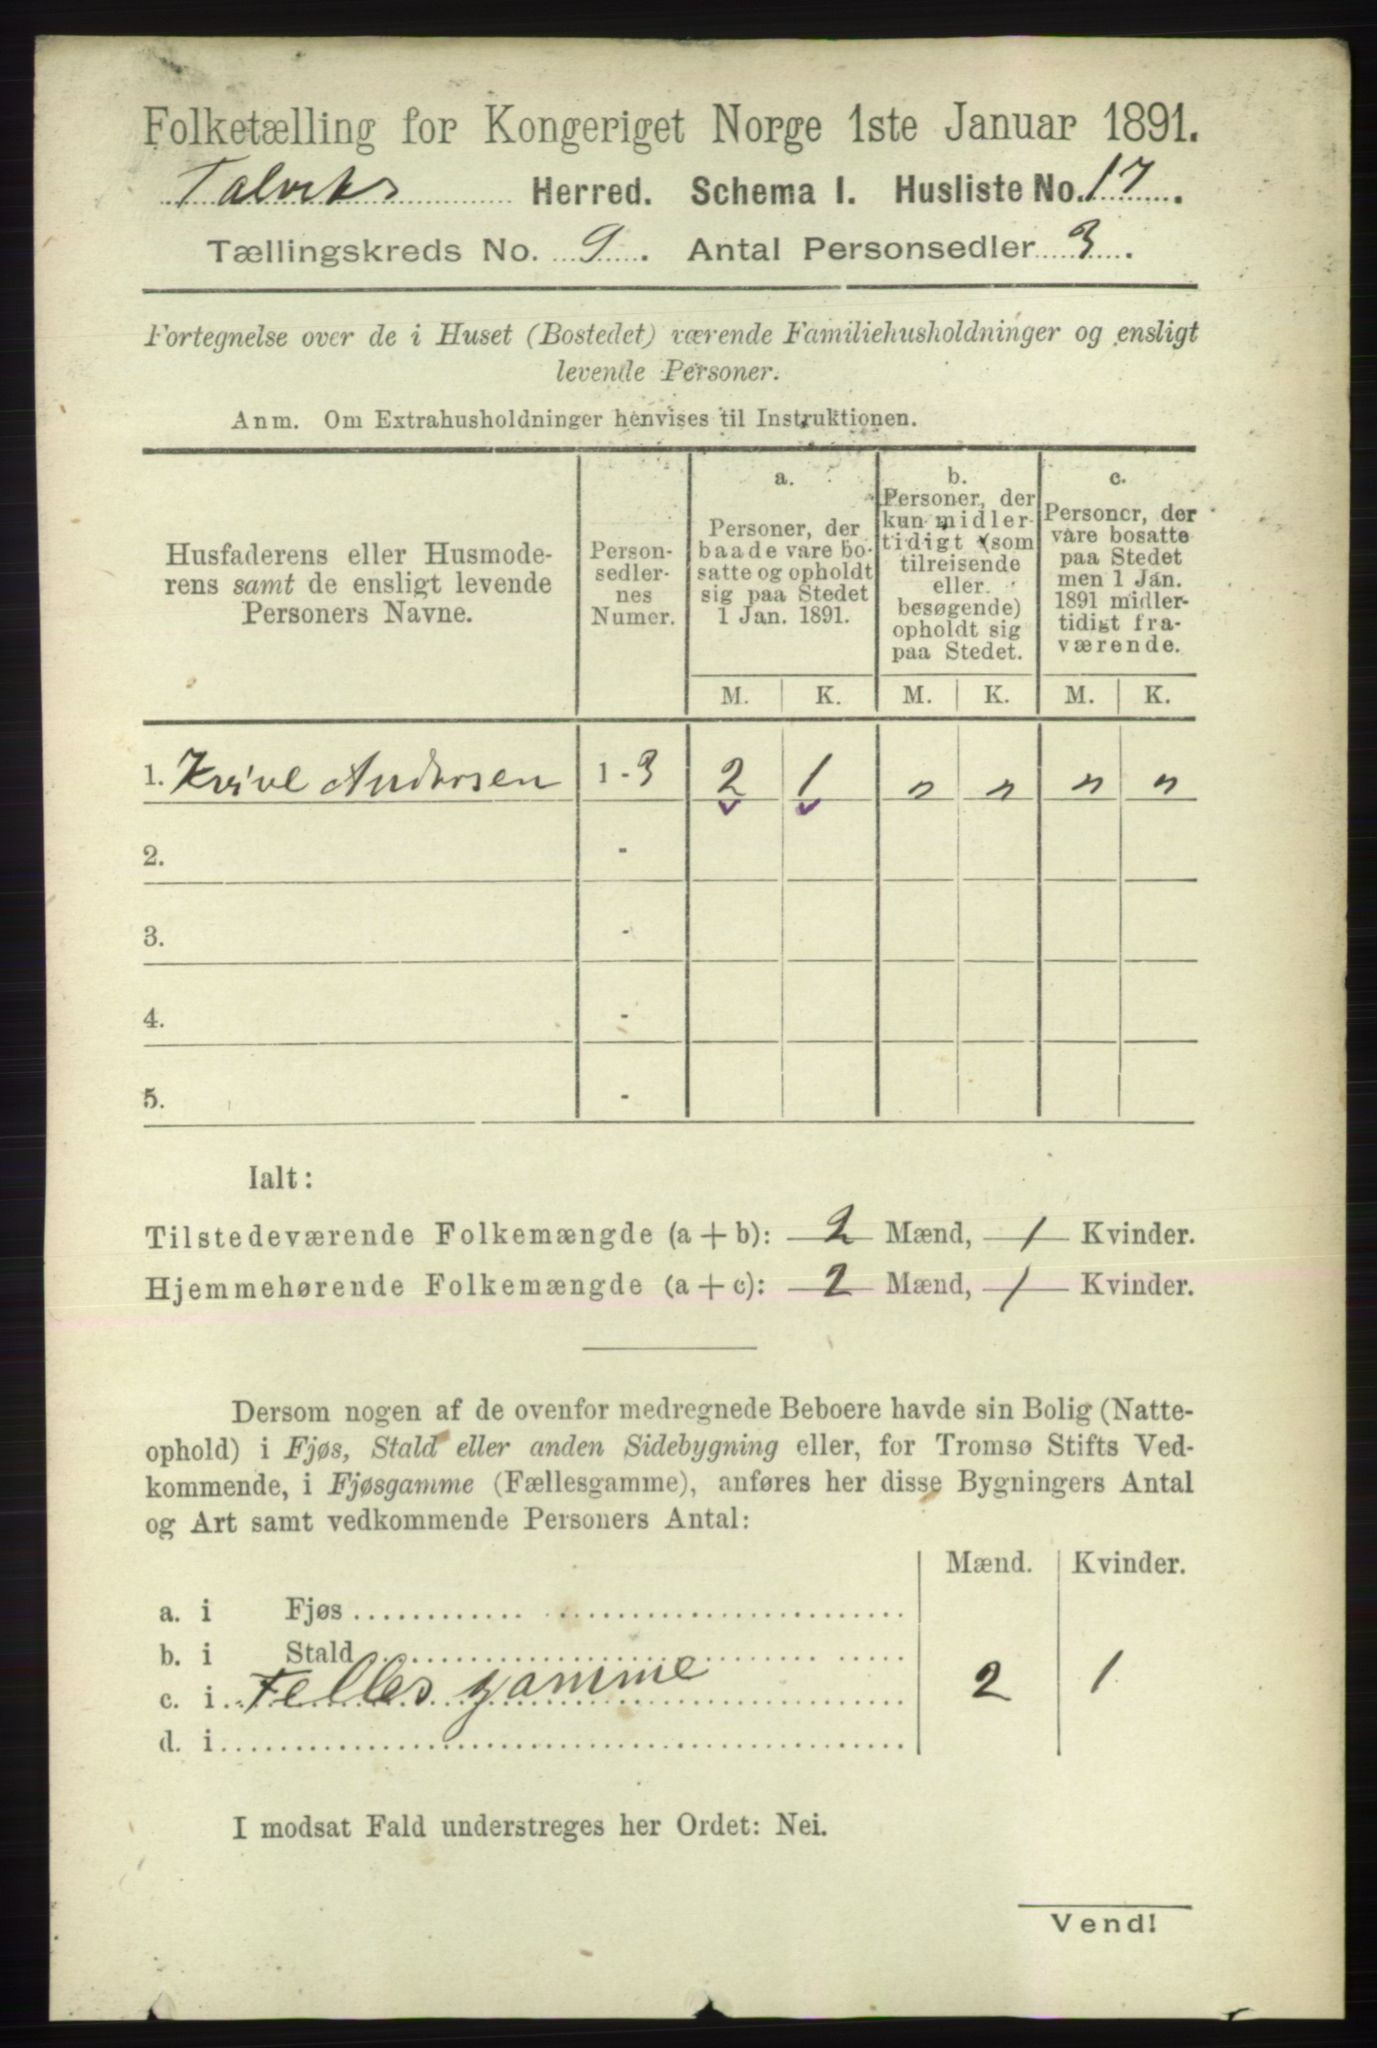 Folketælling for Kongeriget Norge 1ste Januar 1891.
Talviks Herred. Schema I. Husliste No. 17.
Tællingskreds No. 9. Antal Personsedler 3.
Fortegnelse over de i Huset (Bostedet) værende Familiehusholdninger og ensligt
levende Personer.
Anm. Om Extrahusholdninger henvises til Instruktionen.
Husfaderens eller Husmoderens samt de ensligt levende Personers Navne.
Personsedlernes Numer.
a.
Personer, der baade vare bosatte og opholdt sig paa Stedet 1 Jan. 1891.
b.
Personer, der kun midlertidigt (som tilreisende eller besøgende) opholdt sig paa Stedet.
c.
Personer, der vare bosatte paa Stedet men 1 Jan. 1891 midlertidigt fraværende.
M. K. M. K. M. K.
1. Andersen 1-3 2 1 " " " "
2. -
3. -
4. -
5. -
Ialt:
Tilstedeværende Folkemængde (a + b): 2 Mænd, 1 Kvinder.
Hjemmehørende Folkemængde (a + c): 2 Mænd, 1 Kvinder.
Dersom nogen af de ovenfor medregnede Beboere havde sin Bolig (Natte-
ophold) i Fjøs, Stald eller anden Sidebygning eller, for Tromsø Stifts Ved-
kommende, i Fjøsgamme (Fællesgamme), anføres her disse Bygningers Antal
og Art samt vedkommende Personers Antal:
Mænd. Kvinder.
a. i Fjøs
b. i Stald
c. i Felles gamme 2 1
d. i
I modsat Fald understreges her Ordet: Nei.
Vend!